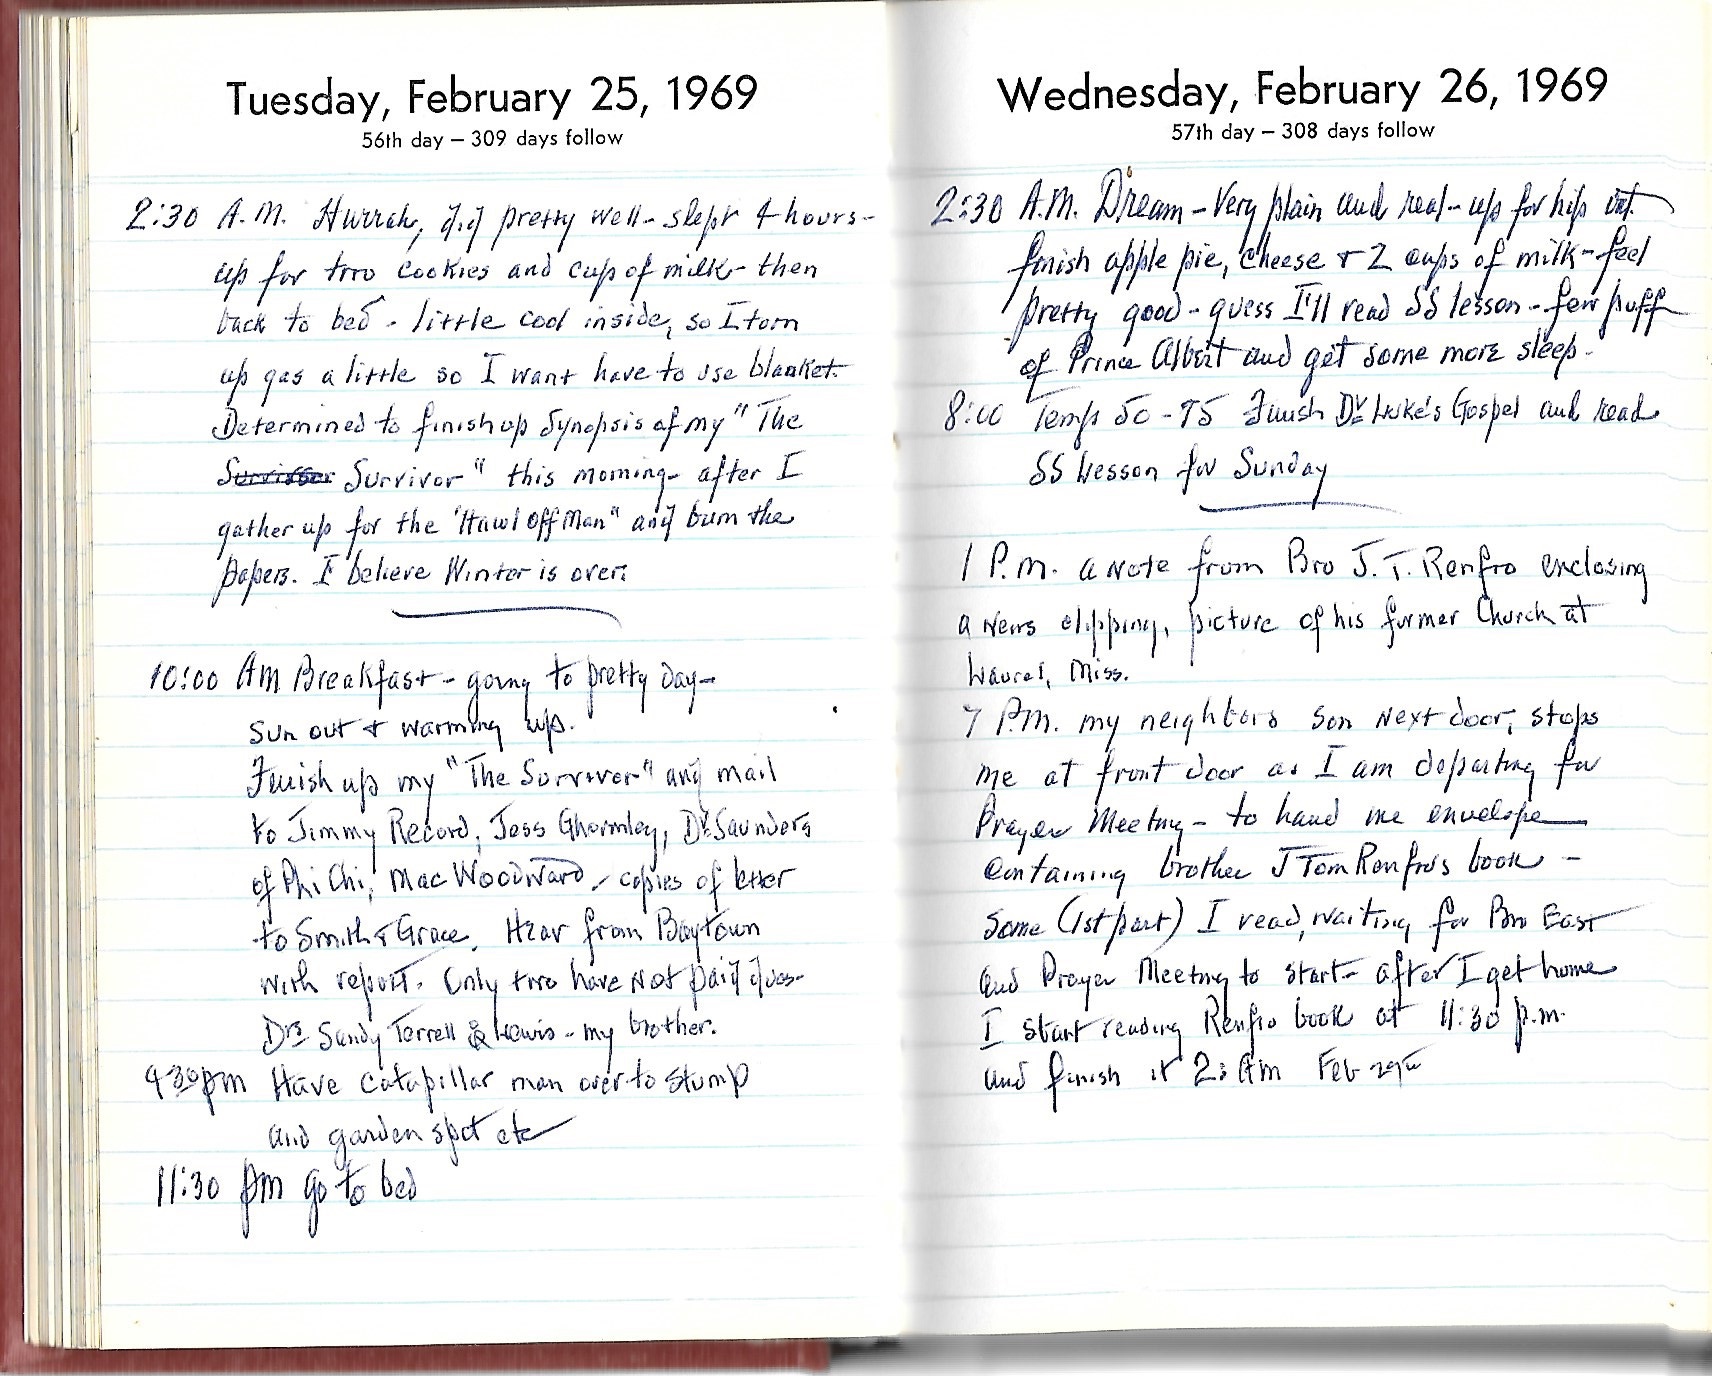 Tuesday, February 25, 1969
56th day – 309 days follow
2:30 A.M. Hurrah, did pretty well - slept 4 hours -
up for two cookies and cup of milk - then
back to bed - little cool inside, so I torn
up gas a little so I want have to use blanket.
Determined to finish up Synopsis of my "The
Survivor" this morning - after I
gather up for the "Hawl Off Man" and burn the
papers. I believe Winter is over.
10:00 AM Breakfast - going to pretty day -
sun out & warming up.
Finish up my "The Survivor" and mail
to Jimmy Record, Jess Ghormley, Dr Saunders
of Phi Chi, Mac Woodward - copies of letter
to Smith & Grace. Hear from Baytown
with report. Only two have not paid dues -
Drs Sandy Terrell & Lewis - my brother.
4:30 pm Have catapillar man over to stump
and garden spot etc
11:30 pm go to bed
Wednesday, February 26, 1969
57th day – 308 days follow
2:30 A.M. Dream - Very plain and real - up for
finish apple pie, cheese & 2 cups of milk - feel
pretty good - guess I'll read SS lesson - few puff
of Prince Albert and get some more sleep -
8:00 Temp 50 - 75 Finish Dr Luke's Gospel and read
SS Lesson for Sunday
1 P.M. a note from Bro J. T. Renfro enclosing
a news clipping, picture of his former Church at
Laurel, Miss.
7 P.M. my neighbors son next door, stops
me at front door as I am departing for
Prayer Meeting - to hand me envelope
containing brother J Tom Renfro's book -
Some (1st part) I read, waiting for Bro East
and Prayer Meeting to start - after I get home
I start reading Renfro book at 11:30 p.m.
and finish it 2: AM Feb